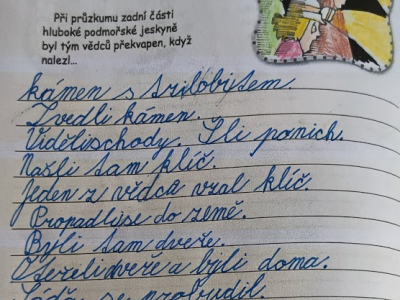 Při průzkumu zadní části
hluboké podmořské jeskyně
byl tým vědců překvapen, když
nalezl...
kámen s trilobitem.
Zvedli kámen.
Viděli schody. Šli po nich.
Našli tam klíč.
Jeden z vědců vzal klíč.
Propadli se do země.
Byli tam dveře.
Otevřeli dveře a byli doma.
se probudil.